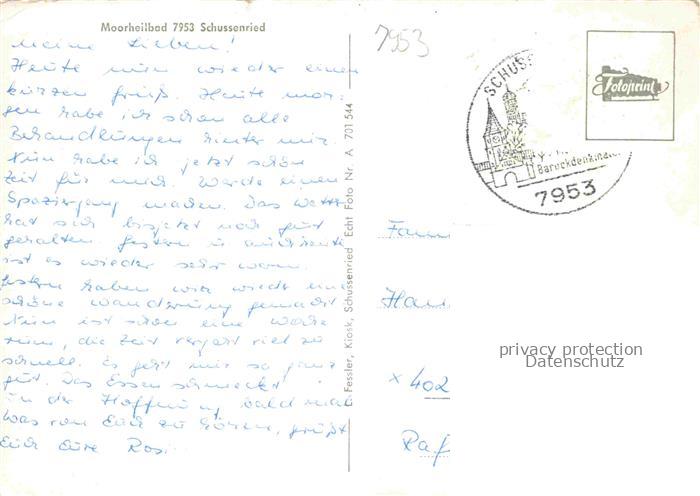 Moorheilbad 7953 Schussenried
7953
Meine Lieben!
Heute nur wieder einen
kurzen Gruß. Heute mor-
gen habe ich schon alle
Behandlungen hinter mir.
Nun habe ich jetzt schön
Zeit für mich. Werde einen
Spaziergang machen. Das Wetter
hat sich bis jetzt noch gut
gehalten. Gestern u. auch heute
ist es wieder sehr warm.
Gestern haben wir wieder eine
schöne Wanderung gemacht
Nun ist schon eine Woche
rum, die Zeit vergeht viel zu
schnell. Es geht mir so ganz
gut. Das Essen schmeckt
In der Hoffnung bald mal
was von Euch zu hören, grüßt
Euch Eure Rosi
L. Fessler, Kiosk, Schussenried Echt Foto Nr. A 701 544
SCHUSS
Barockdenkmal
7953
Fotoprint
Fam
Han
x 402
Ra
privacy protection
Datenschutz